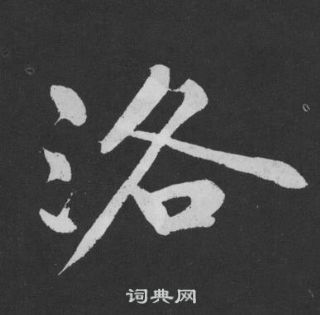 洛
词典网